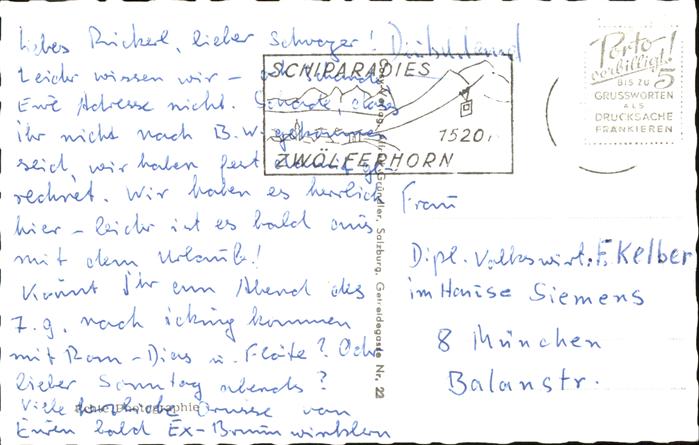 Liebes Rickerl, lieber Schwager!
Leider wissen wir –
Eure Adresse nicht. Schade, dass
ihr nicht nach B.W. gekommen
seid, wir haben fest ge-
rechnet. Wir haben es herrlich
hier – leider ist es bald aus
mit dem Urlaub!
Könnt Ihr am Abend des
7.9. nach Icking kommen
mit Rom-Dias u. Flöte? Oder
lieber Sonntag abends?
Viele herzliche Grüsse von
Euren bald Ex-Braunwinklern
SCHIPARADIES
1520
ZWÖLFERHORN
Porto
verbilligt!
BIS ZU 5
GRUSSWORTEN
ALS
DRUCKSACHE
FRANKIEREN
Gründler, Salzburg, Getreidegasse Nr. 22
Echte Photographie
Frau
Dipl. Volkswirt. F. Kelber
im Hause Siemens
8 München
Balanstr.